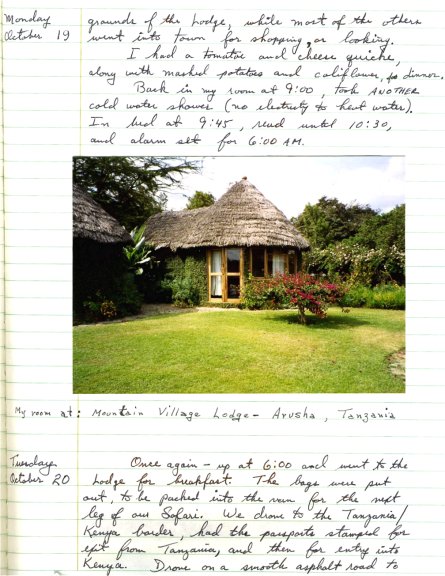 Monday
October 19
grounds of the Lodge, while most of the others
went into town for shopping, or looking.
I had a tomatoe and cheese quiche,
along with mashed potatoes and califlower, for dinner.
Back in my room at 9:00, took ANOTHER
cold water shower (no electricity to heat water).
In bed at 9:45, read until 10:30,
and alarm set for 6:00 AM.
My room at: Mountain Village Lodge - Arusha, Tanzania
Tuesday
October 20
Once again - up at 6:00 and went to the
Lodge for breakfast. The bags were put
out, to be packed into the van for the next
leg of our Safari. We drove to the Tanzania/
Kenya border, had the passports stamped for
exit from Tanzania, and then for entry into
Kenya. Drove on a smooth asphalt road to